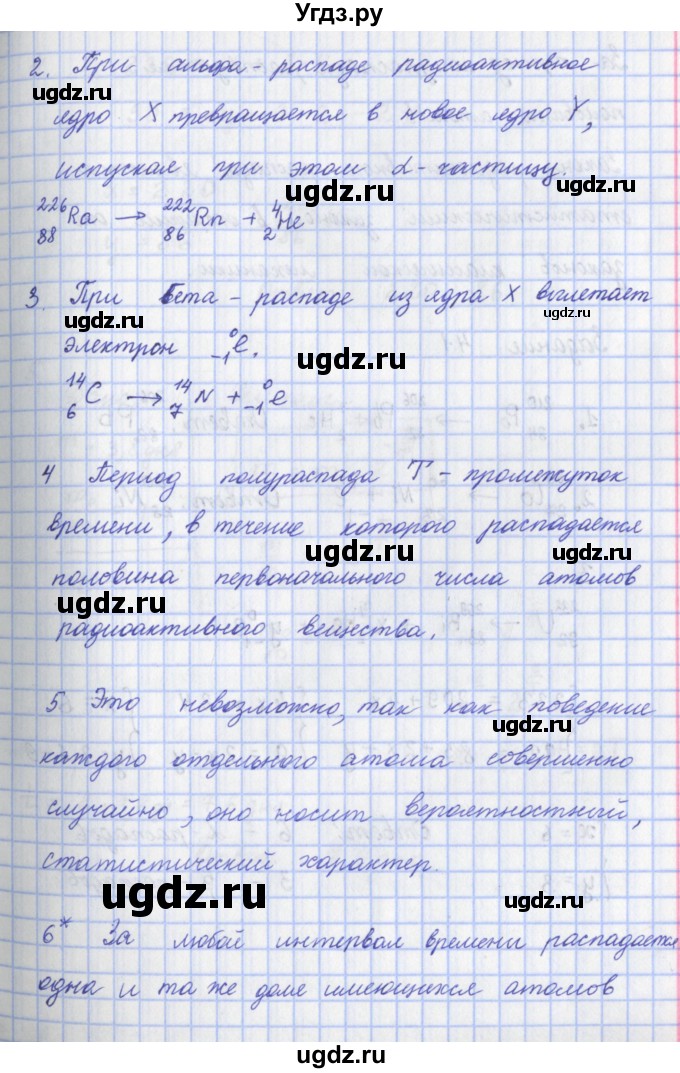 Угдз.ру
2. При альфа-распаде радиоактивное
ugdz.ru
ugdz.ru
ядро X превращается в новое ядро Y,
испуская при этом α-частицу.
ugdz.ru
²²⁶₈₈Ra → ²²²₈₆Rn + ⁴₂He
ugdz.ru
3. При бета-распаде из ядра X вылетает
ugdz.ru
электрон ⁰₋₁e.
ugdz.ru
¹⁴₆C → ¹⁴₇N + ⁰₋₁e
4 Период полураспада T - промежуток
ugdz.ru
времени, в течение которого распадается
ugdz.ru
ugdz.ru
половина первоначального числа атомов
ugdz.ru
радиоактивного вещества.
5 Это невозможно, так как поведение
ugdz.ru
каждого отдельного атома совершенно
случайно, оно носит вероятностный,
статистический характер.
ugdz.ru
ugdz.ru
6* За любой интервал времени распадается
одна и та же доле имеющихся атомов
ugdz.ru
ugdz.ru